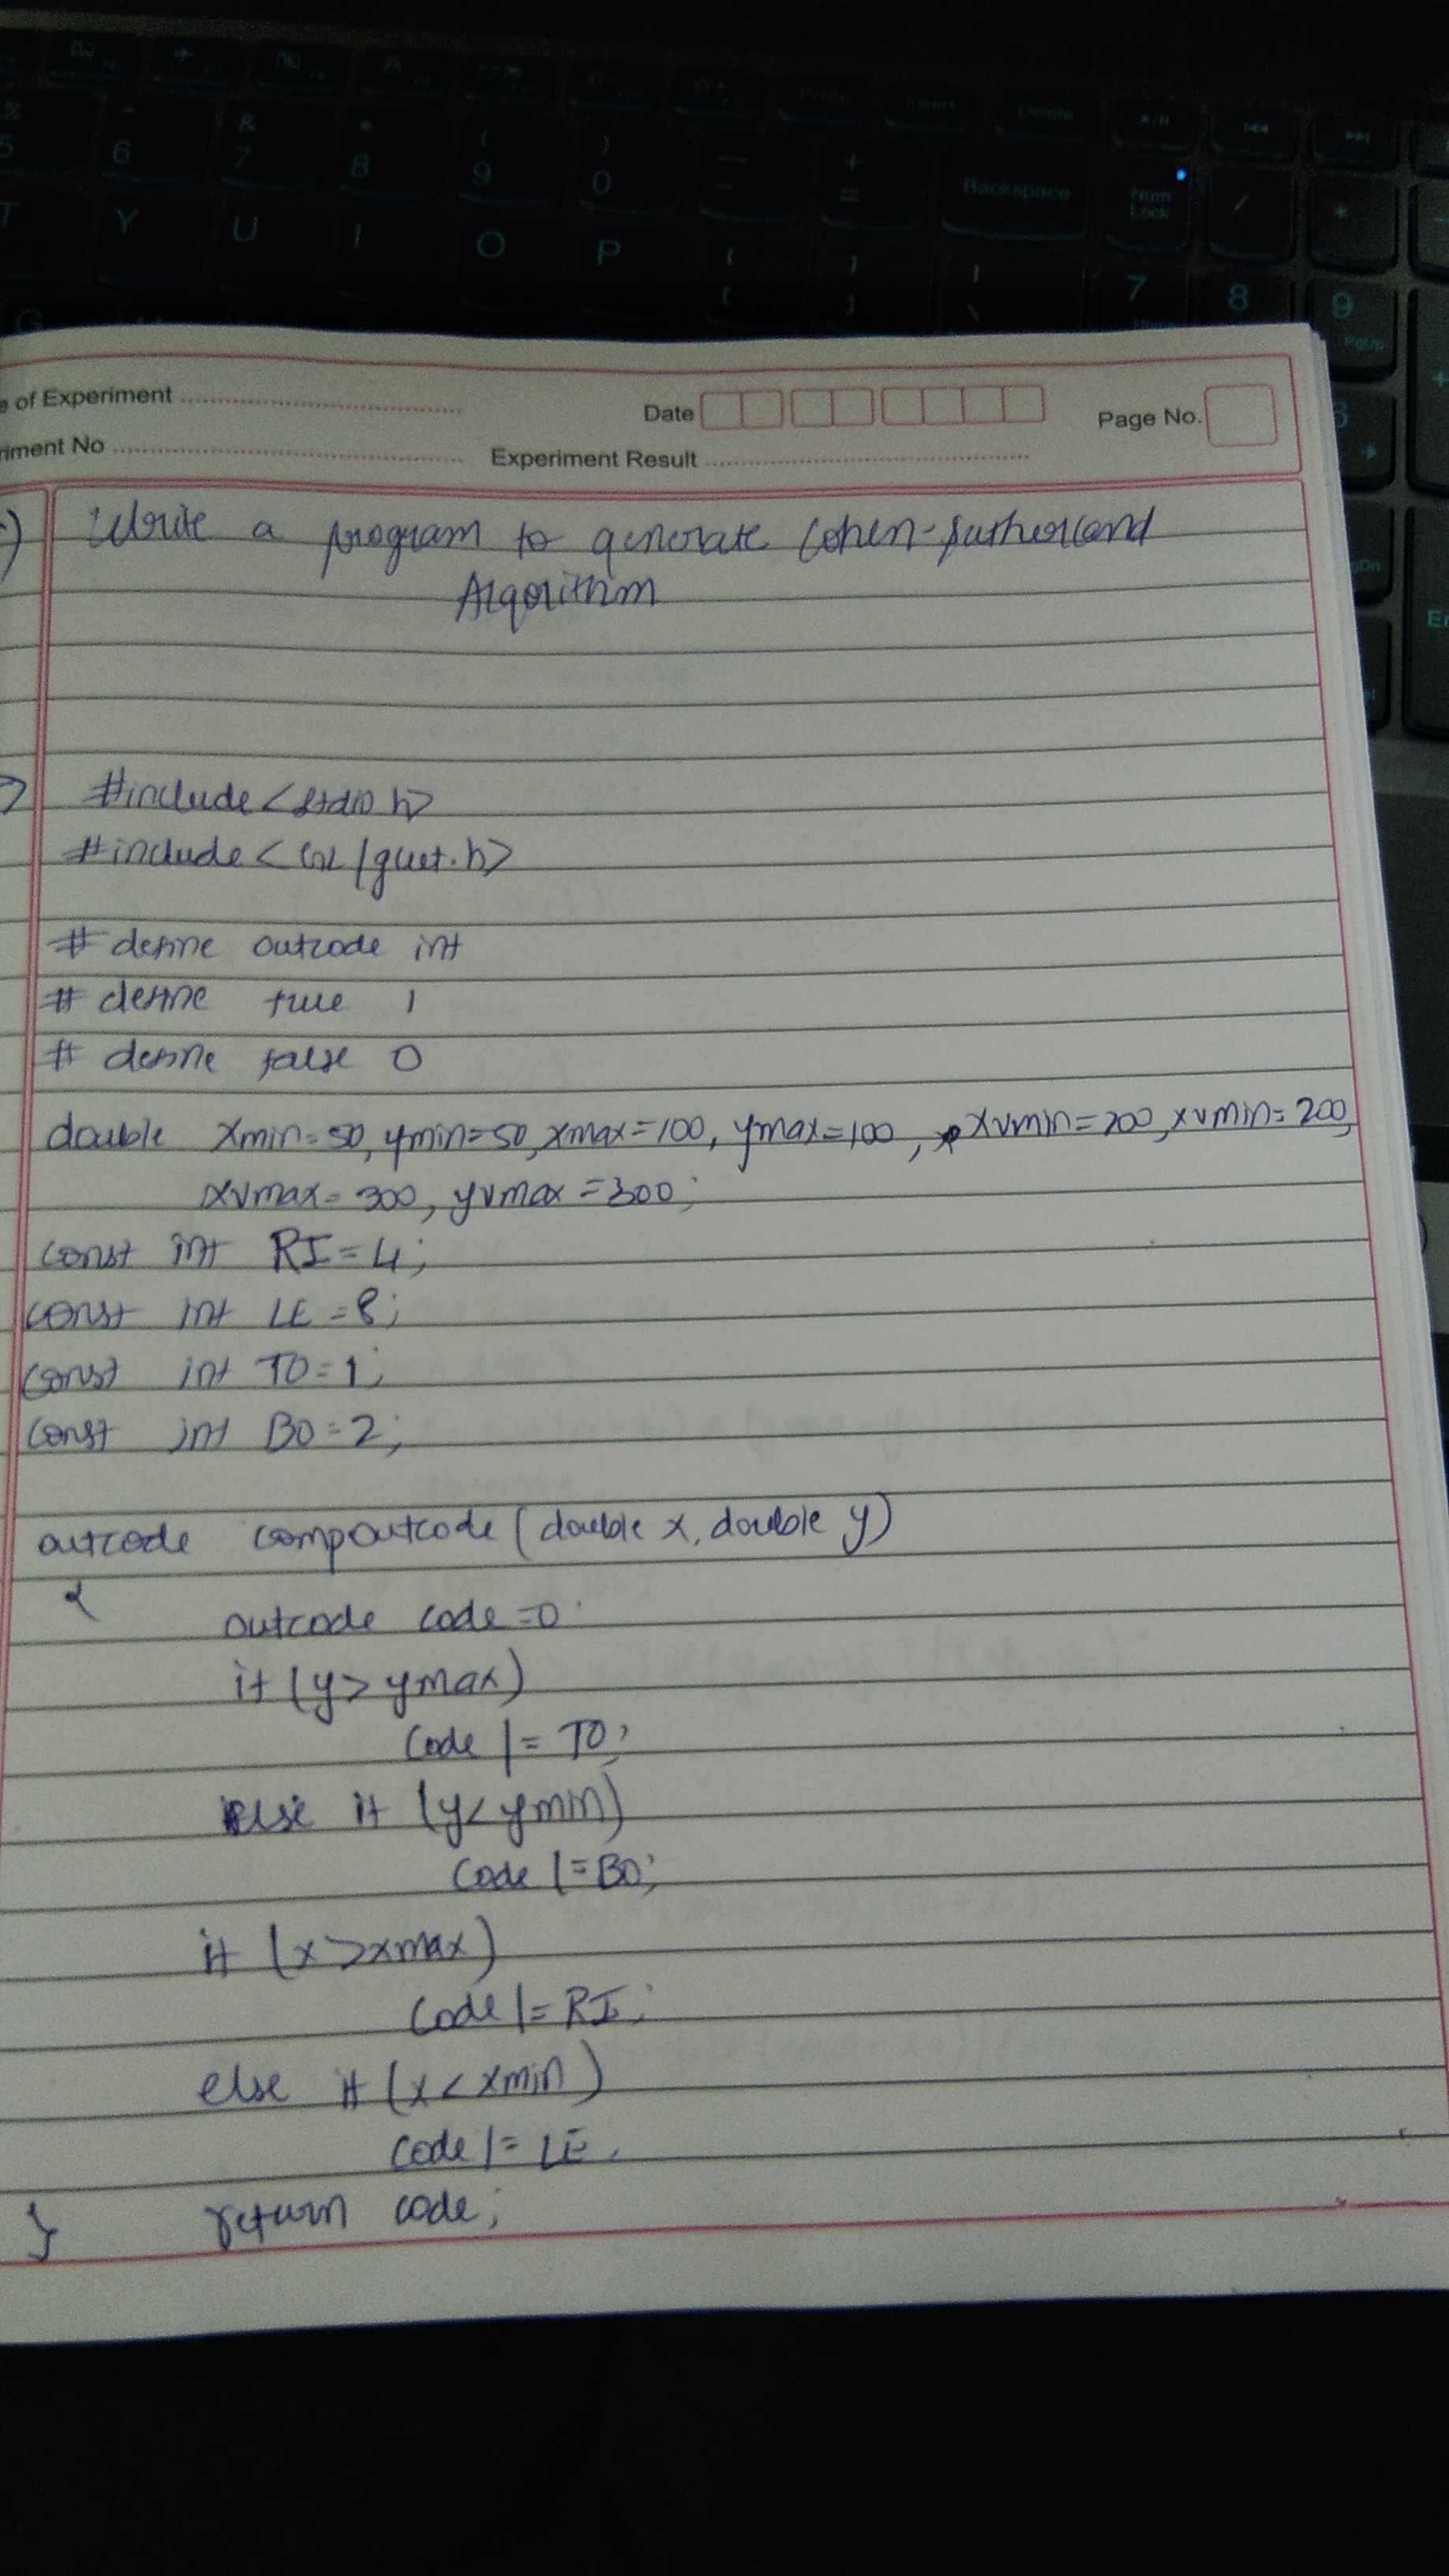 % 5
^ 6
& 7
* 8
( 9
) 0
— -
+ =
Backspace
Num Lock
/
*
T Y U I O P { [ } ] | \ 7 8 9
PrtSc Insert Delete
G
PgUp
6
e of Experiment
Date
Page No.
riment No
Experiment Result
Write a program to generate Cohen-Sutherland
Algorithm
#include<stdio.h>
#include<GL/glut.h>
# define outcode int
# define true 1
# define false 0
double xmin=50, ymin=50, xmax=100, ymax=100, xvmin=200, xvmin=200,
xvmax=300, yvmax=300;
const int RI=4;
const int LE=8;
const int TO=1;
const int BO=2;
outcode compoutcode(double x, double y)
{
outcode code=0;
if (y>ymax)
code |= TO;
else if (y<ymin)
code |=BO;
if (x>xmax)
code |= RI;
else if (x<xmin)
code |= LE.
return code;
}